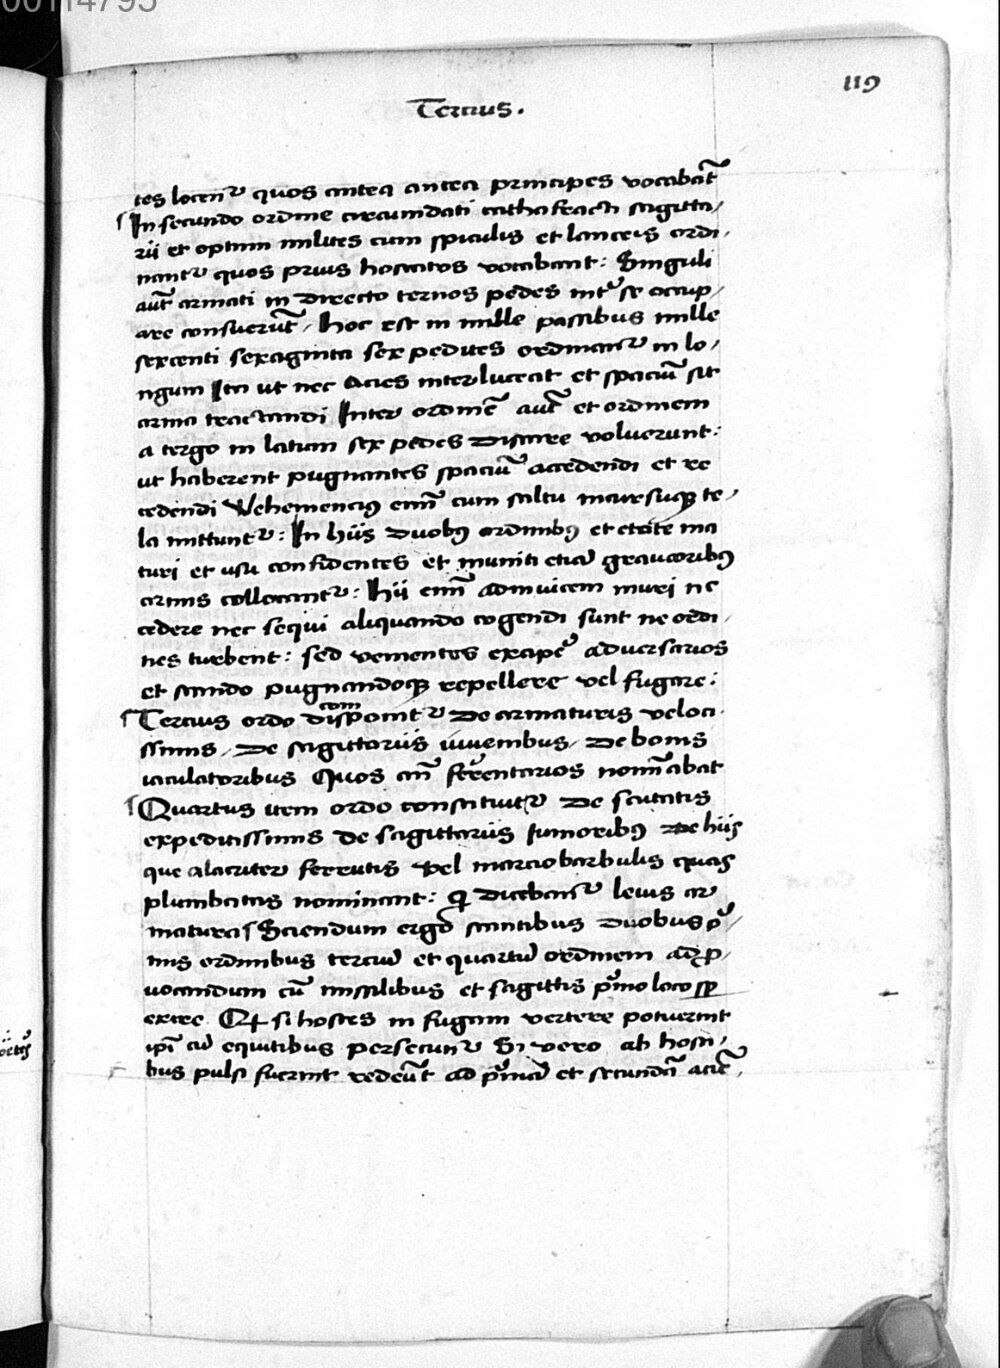 00114795
119
Tercius.
tes locent᷑ quos antea antea principes vocabāt
In secundo ordine circumdati cathafracti sagitta/
rii et optimi milites cum spiculis et lanceis ordi,
nant᷑ quos prius hostatos vocabant: Singuli
aūt armati in directo ternos pedes int᷑ se occup/
are consuerūt / hoc est in mille passibus mille
sexcenti sexaginta sex pedites ordinant᷑ in lo,
ngum Ita ut nec Acies interluceat et spaciū sit
arma tractandi Inter ordinē aūt et ordinem
a tergo in latum sex pedes distare voluerunt:
ut haberent pugnantes spaciū accedendi et re
cedendi Vehemencius enī cum saltu incursuqꝫ te,
la mittunt᷑: In hiis duobꝰ ordinibꝰ et etate ma
turi et usu confidentes et muniti eciā graucoribꝰ
armis collocant᷑: hii enī adinuicem muri ne
cedere nec sequi aliquando cogendi sunt ne ordi,
nes turbent: sed venientes excipe᷑ adversarios
et stando pugnandoqꝫ repellere vel fugare:
com
Tercius ordo disponit᷑ De armaturis veloci,
ssimis, De sagittariis iuvenibus, De bonis
iaculatoribus Quos an̄ ferentarios nominābat
Quartus item ordo constituit᷑ De scutatis
expeditissimis De sagittariis Iunioribꝰ De hiis
que alacriter ferrutis Vel marciobarbulis quas
plumbatas nominant: Qi Dicebant᷑ levis ar
matura Sciendum ergo stantibus Duobus p᷑/
mis ordinibus terciū et quartū ordinem ad ꝓ,
vocandum cū missilibus et sagittis p᷑mo loco sꝑ
exire Qd si hostes in fugam vertere potuerint
ip̄i cū equitibus persecunt᷑ Si vero ab hosti,
bus pulsi fuerint redeūt ad p᷑mā et secundā aciē,